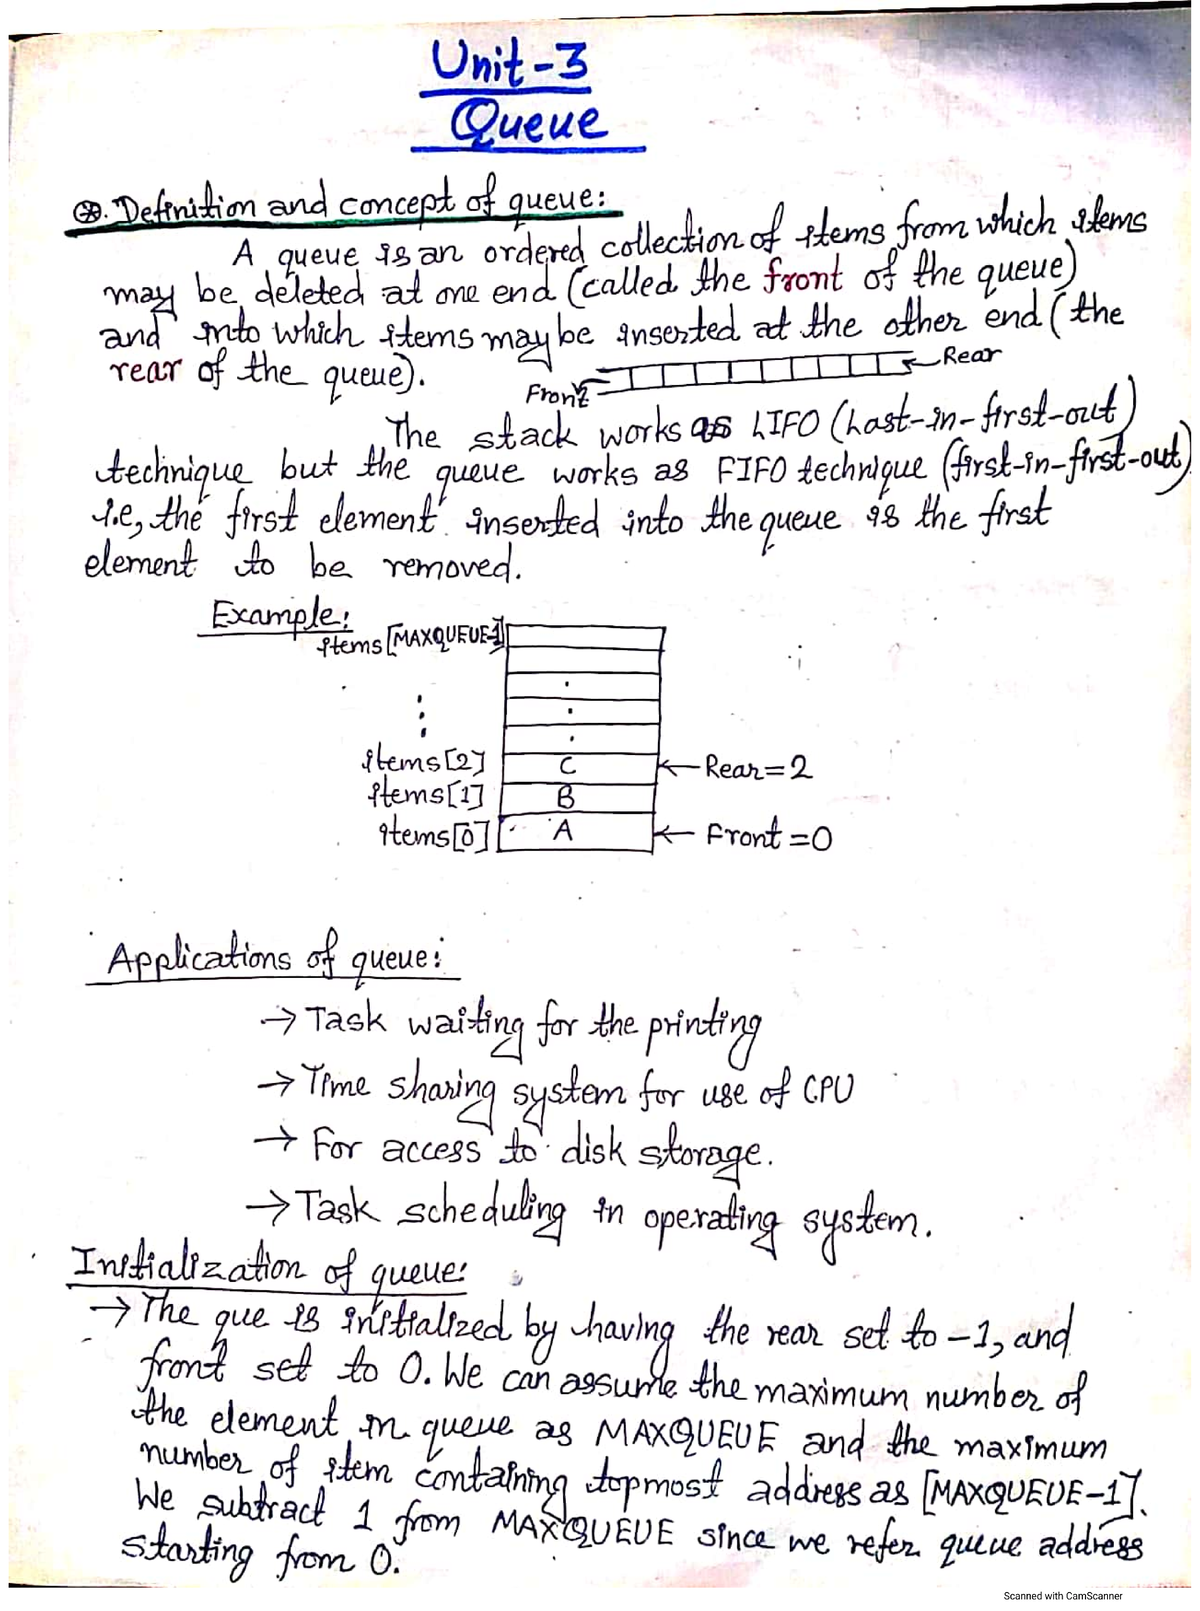 Unit-3
Queue
⊛. Definition and concept of queue:
A queue is an ordered collection of items from which items
may be deleted at one end (called the front of the queue)
and into which items may be inserted at the other end (the
rear of the queue).
Rear
Front
The stack works as LIFO (Last-in-first-out)
technique but the queue works as FIFO technique (first-in-first-out)
i.e, the first element inserted into the queue is the first
element to be removed.
Example:
items[MAXQUEUE-1]
items[2] C Rear=2
items[1] B
items[0] A Front=0
Applications of queue:
→ Task waiting for the printing
→ Time sharing system for use of CPU
→ For access to disk storage.
→ Task scheduling in operating system.
Initialization of queue:
→ The que is initialized by having the rear set to -1, and
front set to 0. We can assume the maximum number of
the element in queue as MAXQUEUE and the maximum
number of item containing topmost address as [MAXQUEUE-1].
We subtract 1 from MAXQUEUE since we refer queue address
starting from 0.
Scanned with CamScanner